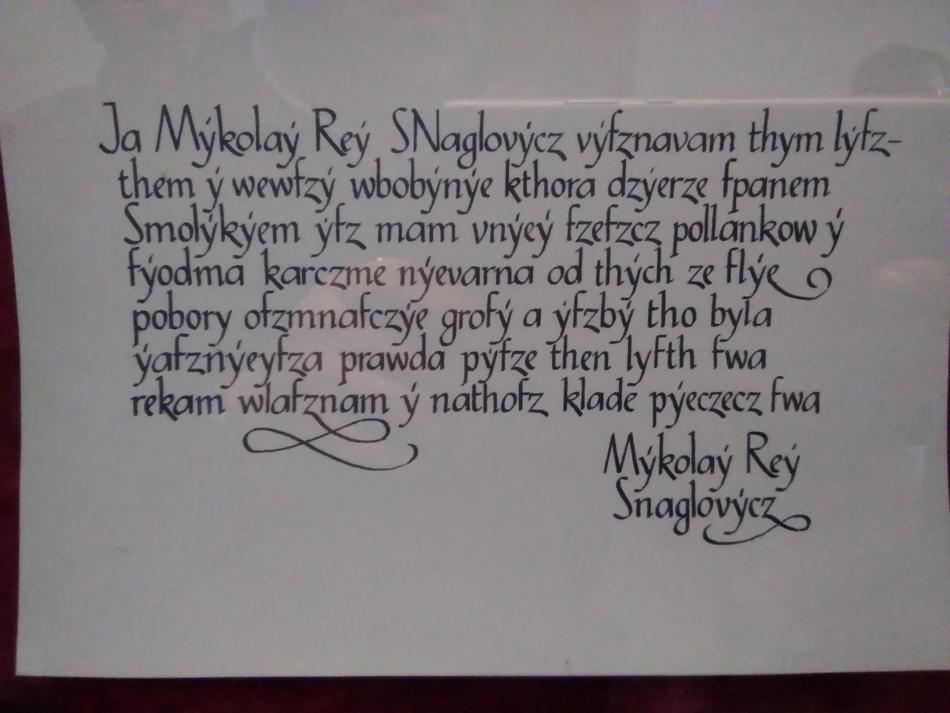 Ja Mýkolaý Reý SNaglovýcz výſznavam thym lýſz-
them ý wewſzý wbobýnýe kthora dzýerze ſpanem
Smolýkýem ýſz mam vnýeý ſzeſzcz pollankow ý
ſýodma karczme nýevarna od thých ze ſlýe
pobory oſzmnaſczýe groſý a ýſzbý tho byla
ýaſznýeyſza prawda pýſze then lyſth ſwa
rekam wlaſznam ý nathoſz klade pýeczecz ſwa
Mýkolaý Reý
Snaglovýcz